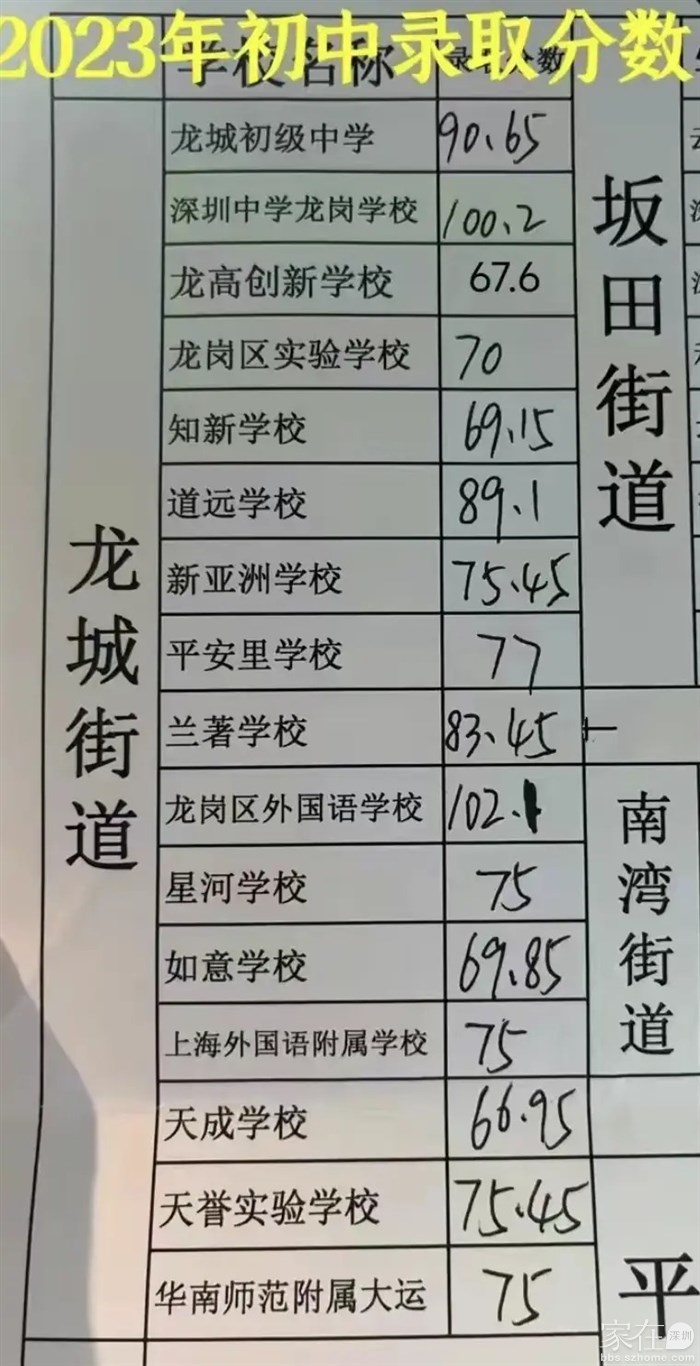 2023年初中录取分数
学校名称 录取分数
龙城街道
龙城初级中学 90.65
深圳中学龙岗学校 100.2
龙高创新学校 67.6
龙岗区实验学校 70
知新学校 69.15
道远学校 89.1
新亚洲学校 75.45
平安里学校 77
兰著学校 83.45
龙岗区外国语学校 102.1
星河学校 75
如意学校 69.85
上海外国语附属学校 75
天成学校 66.95
天誉实验学校 75.45
华南师范附属大运 75
坂田街道
南湾街道
平
家在深圳
bbs.szhome.com